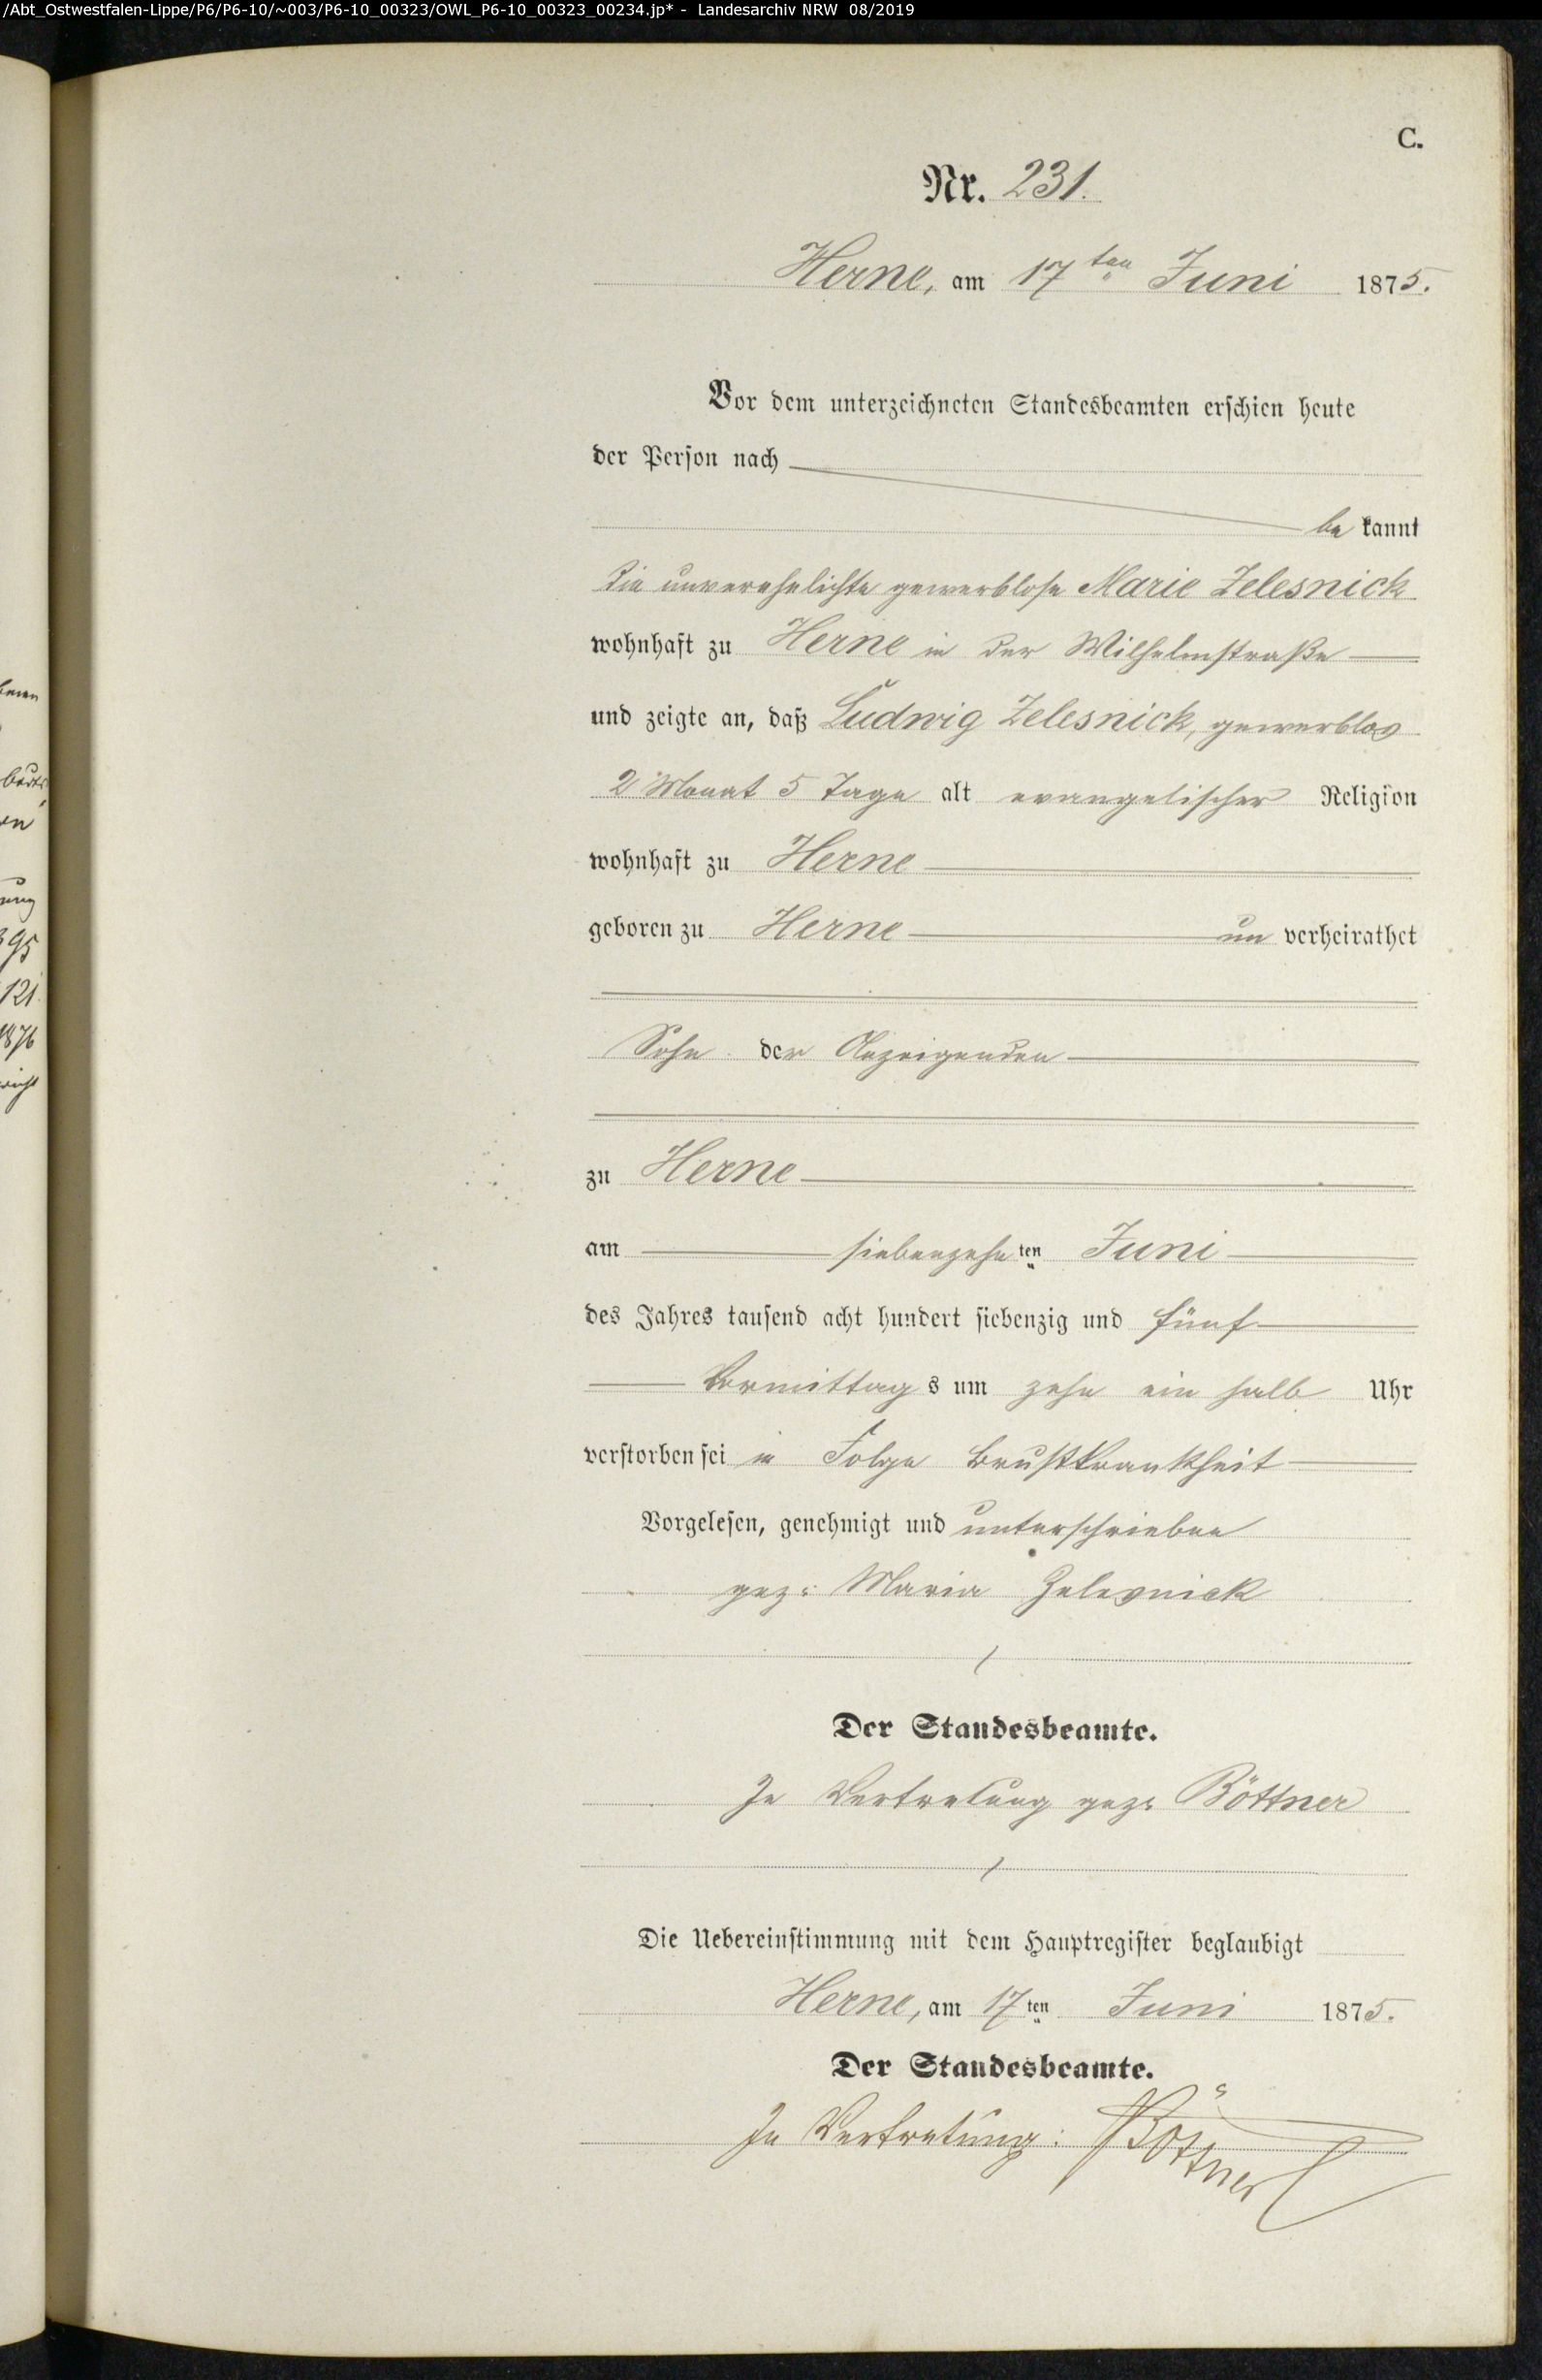 /Abt_Ostwestfalen-Lippe/P6/P6-10/~003/P6-10_00323/OWL_P6-10_00323_00234.jp* - Landesarchiv NRW 08/2019
C.
Nr. 231.
Herne, am 17ten Juni 1875.
Vor dem unterzeichneten Standesbeamten erschien heute
der Person nach
be kannt
die unverehelichte gewerblose Marie Zelesnick
wohnhaft zu Herne in der Wilhelmstraße
und zeigte an, daß Ludwig Zelesnick, gewerblos
2 Monat 5 Tage alt evangelischer Religion
wohnhaft zu Herne
geboren zu Herne un verheirathet
Sohn der Anzeigenden
zu Herne
am siebenzehnten Juni
des Jahres tausend acht hundert siebenzig und fünf
Vormittags um zehn ein halb Uhr
verstorben sei in Folge Brustkrankheit
Vorgelesen, genehmigt und unterschrieben
gez: Maria Zelesnick
Der Standesbeamte.
In Vertretung gez: Böttner
Die Uebereinstimmung mit dem Hauptregister beglaubigt
Herne, am 17ten Juni 1875.
Der Standesbeamte.
In Vertretung: Böttner
395
121
1876